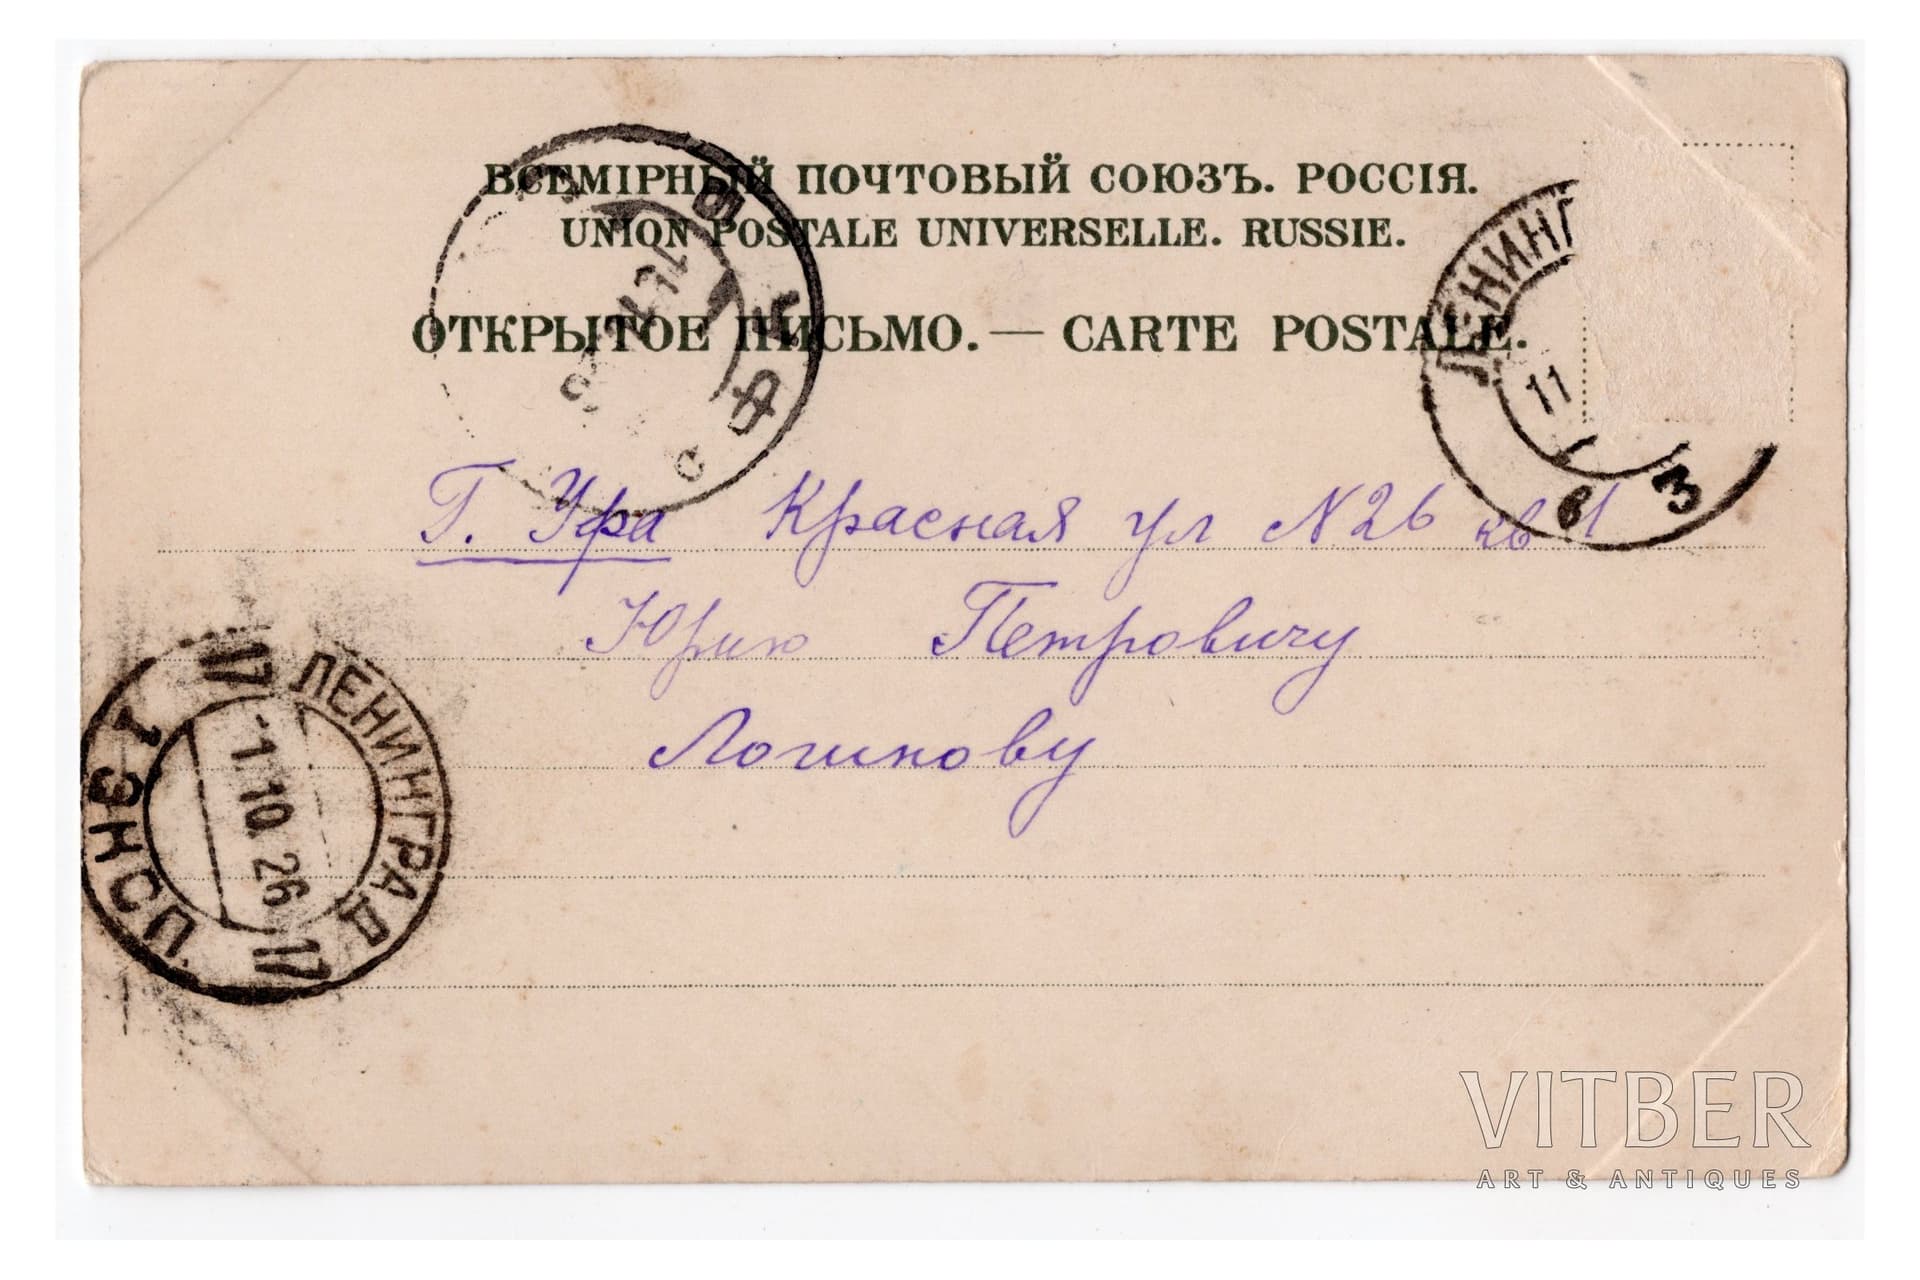 ВСЕМІРНЫЙ ПОЧТОВЫЙ СОЮЗЪ. РОССІЯ.
UNION POSTALE UNIVERSELLE. RUSSIE.
ОТКРЫТОЕ ПИСЬМО. — CARTE POSTALE.
УФА
ЛЕНИНГ
11
в 3
Г. Уфа Красная ул N 26 кв 1
Юрию Петровичу
Логинову
17 ЛЕНИНГРАД 17
1 ЭКСП.
1.10.26
VITBER
ART & ANTIQUES